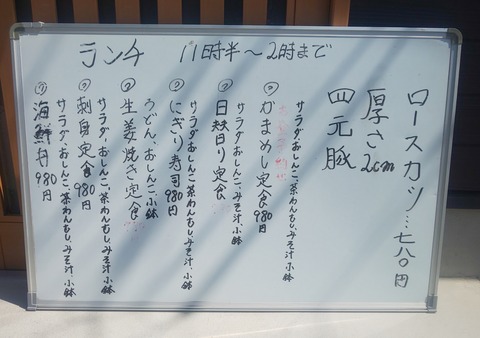 ランチ 11時半～2時まで
ロースカツ…七八〇円
厚さ2cm
四元豚
サラダ、おしんこ、茶わんむし、みそ汁、小鉢
かまめし定食980円
サラダ、おしんこ、茶わんむし、みそ汁、小鉢
日替り定食
サラダ、おしんこ、茶わんむし、みそ汁、小鉢
にぎり寿司980円
うどん、おしんこ、小鉢
生姜焼き定食
サラダ、おしんこ、茶わんむし、みそ汁、小鉢
刺身定食980円
サラダ、おしんこ、茶わんむし、みそ汁、小鉢
海鮮丼980円